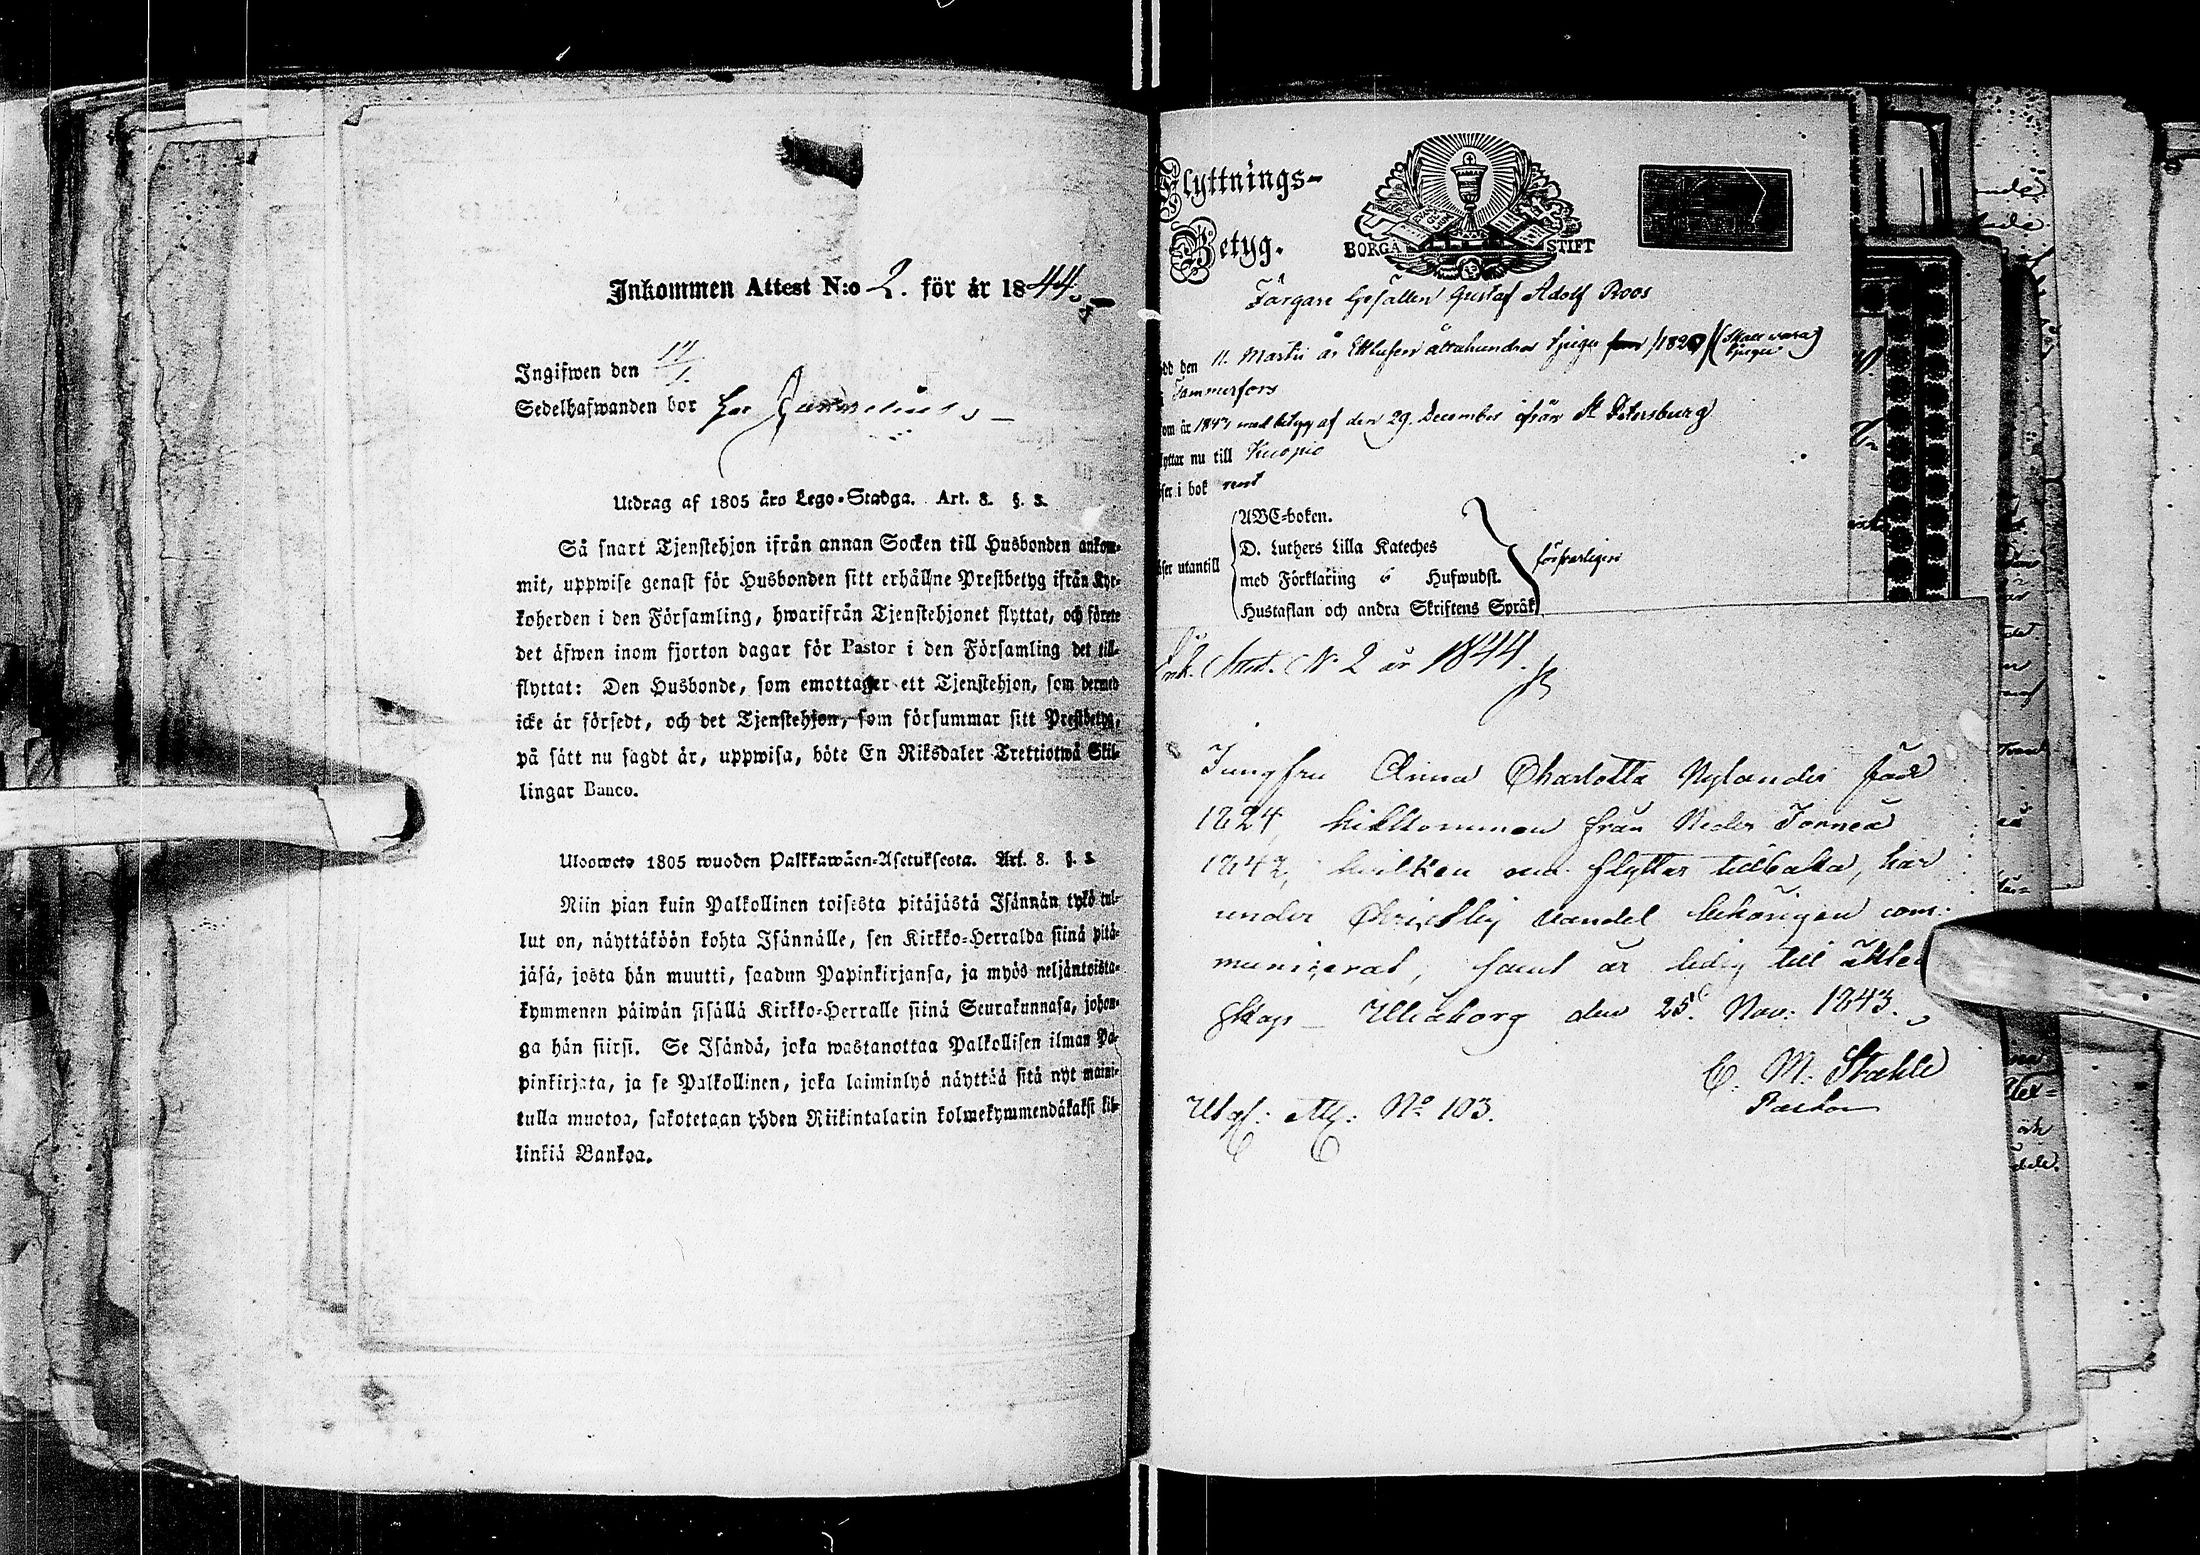 Inkommen Attest N:o 2. för år 1844.
Ingifwen den 17/1.
Sedelhafwanden bor hos
Utdrag af 1805 års Lego-Stadga. Art. 8. §. 3.
Så snart Tjenstehjon ifrån annan Socken till Husbonden ankom-
mit, uppwise genast för Husbonden sitt erhållne Prestbetyg ifrån Kyr-
koherden i den Församling, hwarifrån Tjenstehjonet flyttat, och förete
det äfwen inom fjorton dagar för Pastor i den Församling det till-
flyttat: Den Husbonde, som emottager ett Tjenstehjon, som dermed
icke är försedt, och det Tjenstehjon, som försummar sitt Prestbetyg,
på sätt nu sagdt är, uppwisa, böte En Riksdaler Trettiotwå Skil-
lingar Banco.
Uloswets 1805 wuoden Palkkawäen-Asetuksesta. Art. 8. §. 3.
Niin pian kuin Palkollinen toisesta pitäjästä Isännän tykö tul-
lut on, näyttäköön kohta Isännälle, sen Kirkko-Herralda siinä pitä-
jäsä, josta hän muutti, saadun Papinkirjansa, ja myös neljäntoista-
kymmenen päiwän sisällä Kirkko-Herralle siinä Seurakunnasa, johon-
ga hän siirsi. Se Isändä, joka wastanottaa Palkollisen ilman Pa-
pinkirjata, ja se Palkollinen, joka laiminlyö näyttää sitä nyt maini-
tulla muotoa, sakotetaan yhden Riikintalarin kolmekymmendäkaksi kil-
linkiä Bankoa.
Flyttnings-
Betyg.
BORGÅ STIFT
Färgare Gesällen Gustaf Adolf Roos
ödd den 11. Martii år Ettusen åttahundra tjugu fem /1820/ (Skall vara tjugu)
i Tammerfors
om år 1843 med betyg af den 29. December ifrån St Petersburg
lyttar nu till Kuopio
äser i bok rent
äser utantill
ABC-boken.
D. Luthers Lilla Kateches
med Förklaring 6 Hufwudst.
Hustaflan och andra Skriftens Språk
försvarligen
Ink. Attest. N 2 år 1844.
Jungfru Anna Charlotta Nylander född
1824, hitkommen från Neder Torneå
1842, hvilken nu flyttar tillbaka, har
under Christlig vandel behörigen com-
municerat, samt är ledig till äkten
skap – Uleåborg den 25. Nov. 1843.
C. M. Stahle
Pastor
Utgf. Att. No 103.